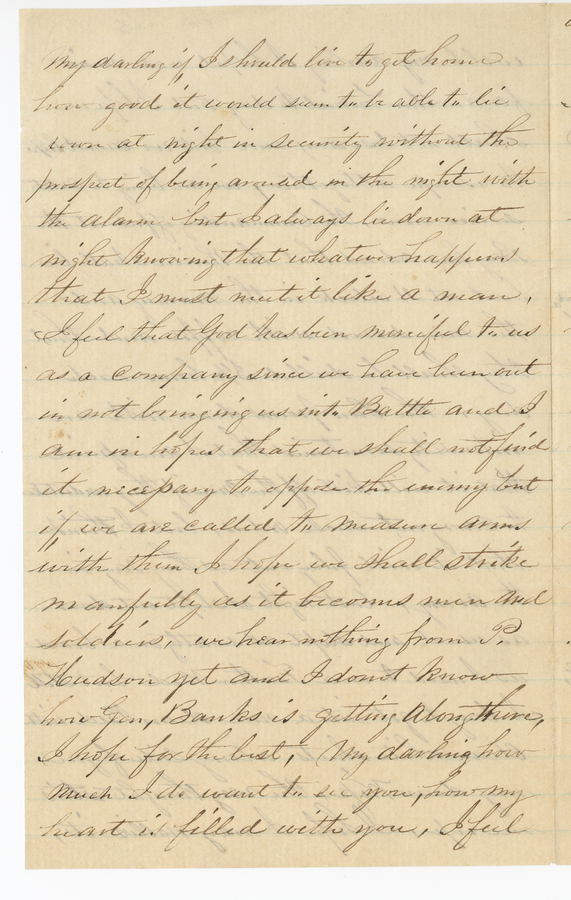 My darling if I should live to get home
how good it would seem to be able to lie
down at night in security without the
prospect of being aroused in the night with
the alarm but I always lie down at
night knowing that whatever happens
that I must meet it like a man,
I feel that God has been merciful to us
as a company since we have been out
in not bringing us into Battle and I
am in hopes that we shall not find
it necessary to oppose the enemy but
if we are called to measure arms
with them I hope we shall strike
manfully as it becomes men and
soldiers, we hear nothing from P.
Hudson yet and I do not know
how Gen, Banks is getting along there,
I hope for the best, My darling how
much I do want to see you, how my
heart is filled with you, I feel